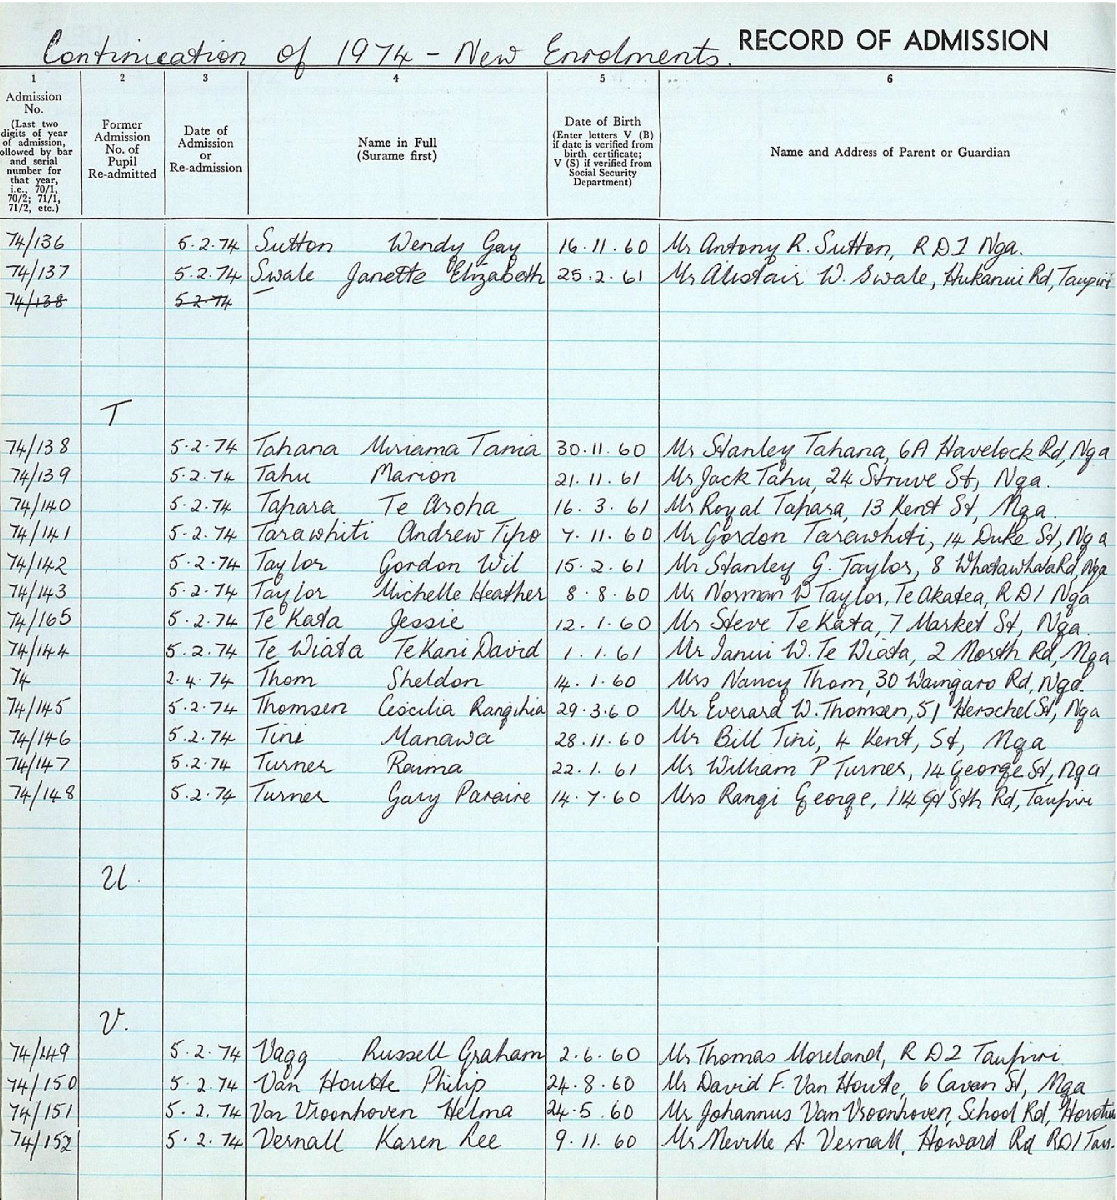 Continuation of 1974 - New Enrolments. RECORD OF ADMISSION
1 2 3 4 5 6
Admission No. (Last two digits of year of admission, followed by bar and serial number for that year, i.e., 70/1, 70/2; 71/1, 71/2, etc.) Former Admission No. of Pupil Re-admitted Date of Admission or Re-admission Name in Full (Surame first) Date of Birth (Enter letters V (B) if date is verified from birth certificate; V (S) if verified from Social Security Department) Name and Address of Parent or Guardian
74/136 5.2.74 Sutton Wendy Gay 16.11.60 Mr Antony R. Sutton, R D 1 Nga.
74/137 5.2.74 Swale Janette Elizabeth 25.2.61 Mr Alistair W. Swale, Hukanui Rd, Taupiri
74/138 5.2.74
T
74/138 5.2.74 Tahana Miriama Tania 30.11.60 Mr Stanley Tahana, 6A Havelock Rd, Nga
74/139 5.2.74 Tahu Marion 21.11.61 Mr Jack Tahu, 24 Struve St, Nga.
74/140 5.2.74 Tapara Te Aroha 16.3.61 Mr Royal Tapara, 13 Kent St, Nga.
74/141 5.2.74 Tarawhiti Andrew Tipo 7.11.60 Mr Gordon Tarawhiti, 14 Duke St, Nga
74/142 5.2.74 Taylor Gordon Wil 15.2.61 Mr Stanley G. Taylor, 8 Whatawhata Rd, Nga
74/143 5.2.74 Taylor Michelle Heather 8.8.60 Mr Norman W Taylor, Te Akatea, R D 1 Nga
74/165 5.2.74 Te Kata Jessie 12.1.60 Mr Steve Te Kata, 7 Market St, Nga.
74/144 5.2.74 Te Wiata Te Kani David 1.1.61 Mr Ianui W. Te Wiata, 2 North Rd, Nga
74 2.4.74 Thom Sheldon 14.1.60 Mrs Nancy Thom, 30 Waingaro Rd, Nga.
74/145 5.2.74 Thomsen Cecilia Rangihia 29.3.60 Mr Everard W. Thomsen, 51 Herschel St, Nga
74/146 5.2.74 Tini Manawa 28.11.60 Mr Bill Tini, 4 Kent, St, Nga
74/147 5.2.74 Turner Rauma 22.1.61 Mr William P Turner, 14 George St, Nga
74/148 5.2.74 Turner Gary Paraire 14.7.60 Mrs Rangi George, 114 Gt Sth Rd, Taupiri
U.
V.
74/149 5.2.74 Vagg Russell Graham 2.6.60 Mr Thomas Moreland, R D 2 Taupiri
74/150 5.2.74 Van Houtte Philip 24.8.60 Mr David F. Van Houte, 6 Cavan St, Nga
74/151 5.2.74 Van Vroonhoven Helma 24.5.60 Mr Johannus Van Vroonhoven, School Rd, Horotiu
74/152 5.2.74 Vernall Karen Lee 9.11.60 Mr Neville A Vernall, Howard Rd RD1 Tau.